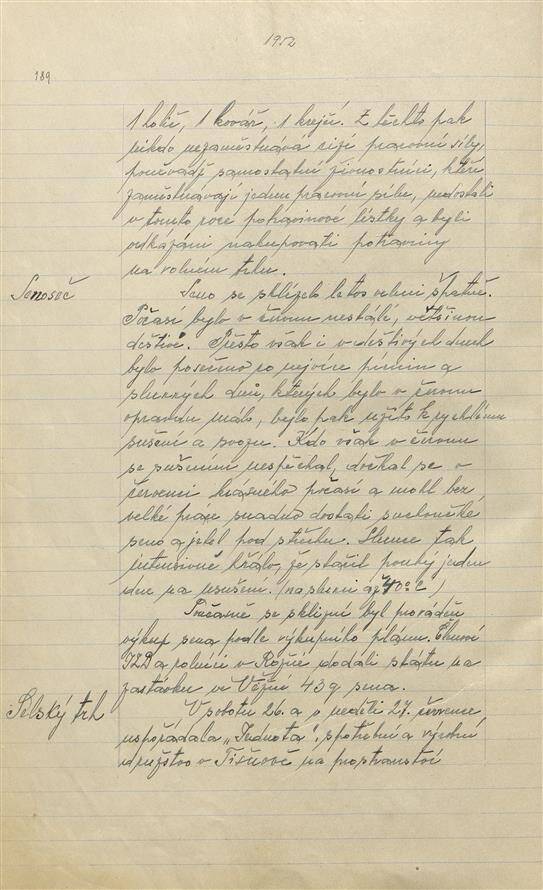 1952
189
1 holič, 1 kovář, 1 krejčí. Z těchto pak
nikdo nezaměstnává cizí pracovní síly,
poněvadž samostatní živnostníci, kteří
zaměstnávají jednu pracovní sílu, nedostali
v tomto roce potravinové lístky a byli
odkázáni nakupovati potraviny
na volném trhu.
Senoseč
Seno se sklízelo letos velmi špatně.
Počasí bylo v červnu nestálé, většinou
deštivé. Přesto však i v deštivých dnech
bylo posečeno co nejvíce pícnin a
slunných dnů, kterých bylo v červnu
opravdu málo, bylo pak užito k rychlému
sušení a svozu. Kdo však v červnu
se sušením nespěchal, dočkal se v
červenci krásného počasí a mohl bez
velké práce snadno dostati
seno a jetel pod střechu. Slunce tak
intensivně hřálo, že stačil pouhý jeden
den na usušení. (na slunci až 40° C)
Současně se sklizní byl prováděn
výkup sena podle výkupního plánu. Členové
JZD a rolníci v Rožné dodali státu na
zastávku ve Věžné 43 q sena.
Selský trh
V sobotu 26. a v neděli 27. července
uspořádala „Jednota“, spotřební a výrobní
družstvo v Tišnově na prostranství